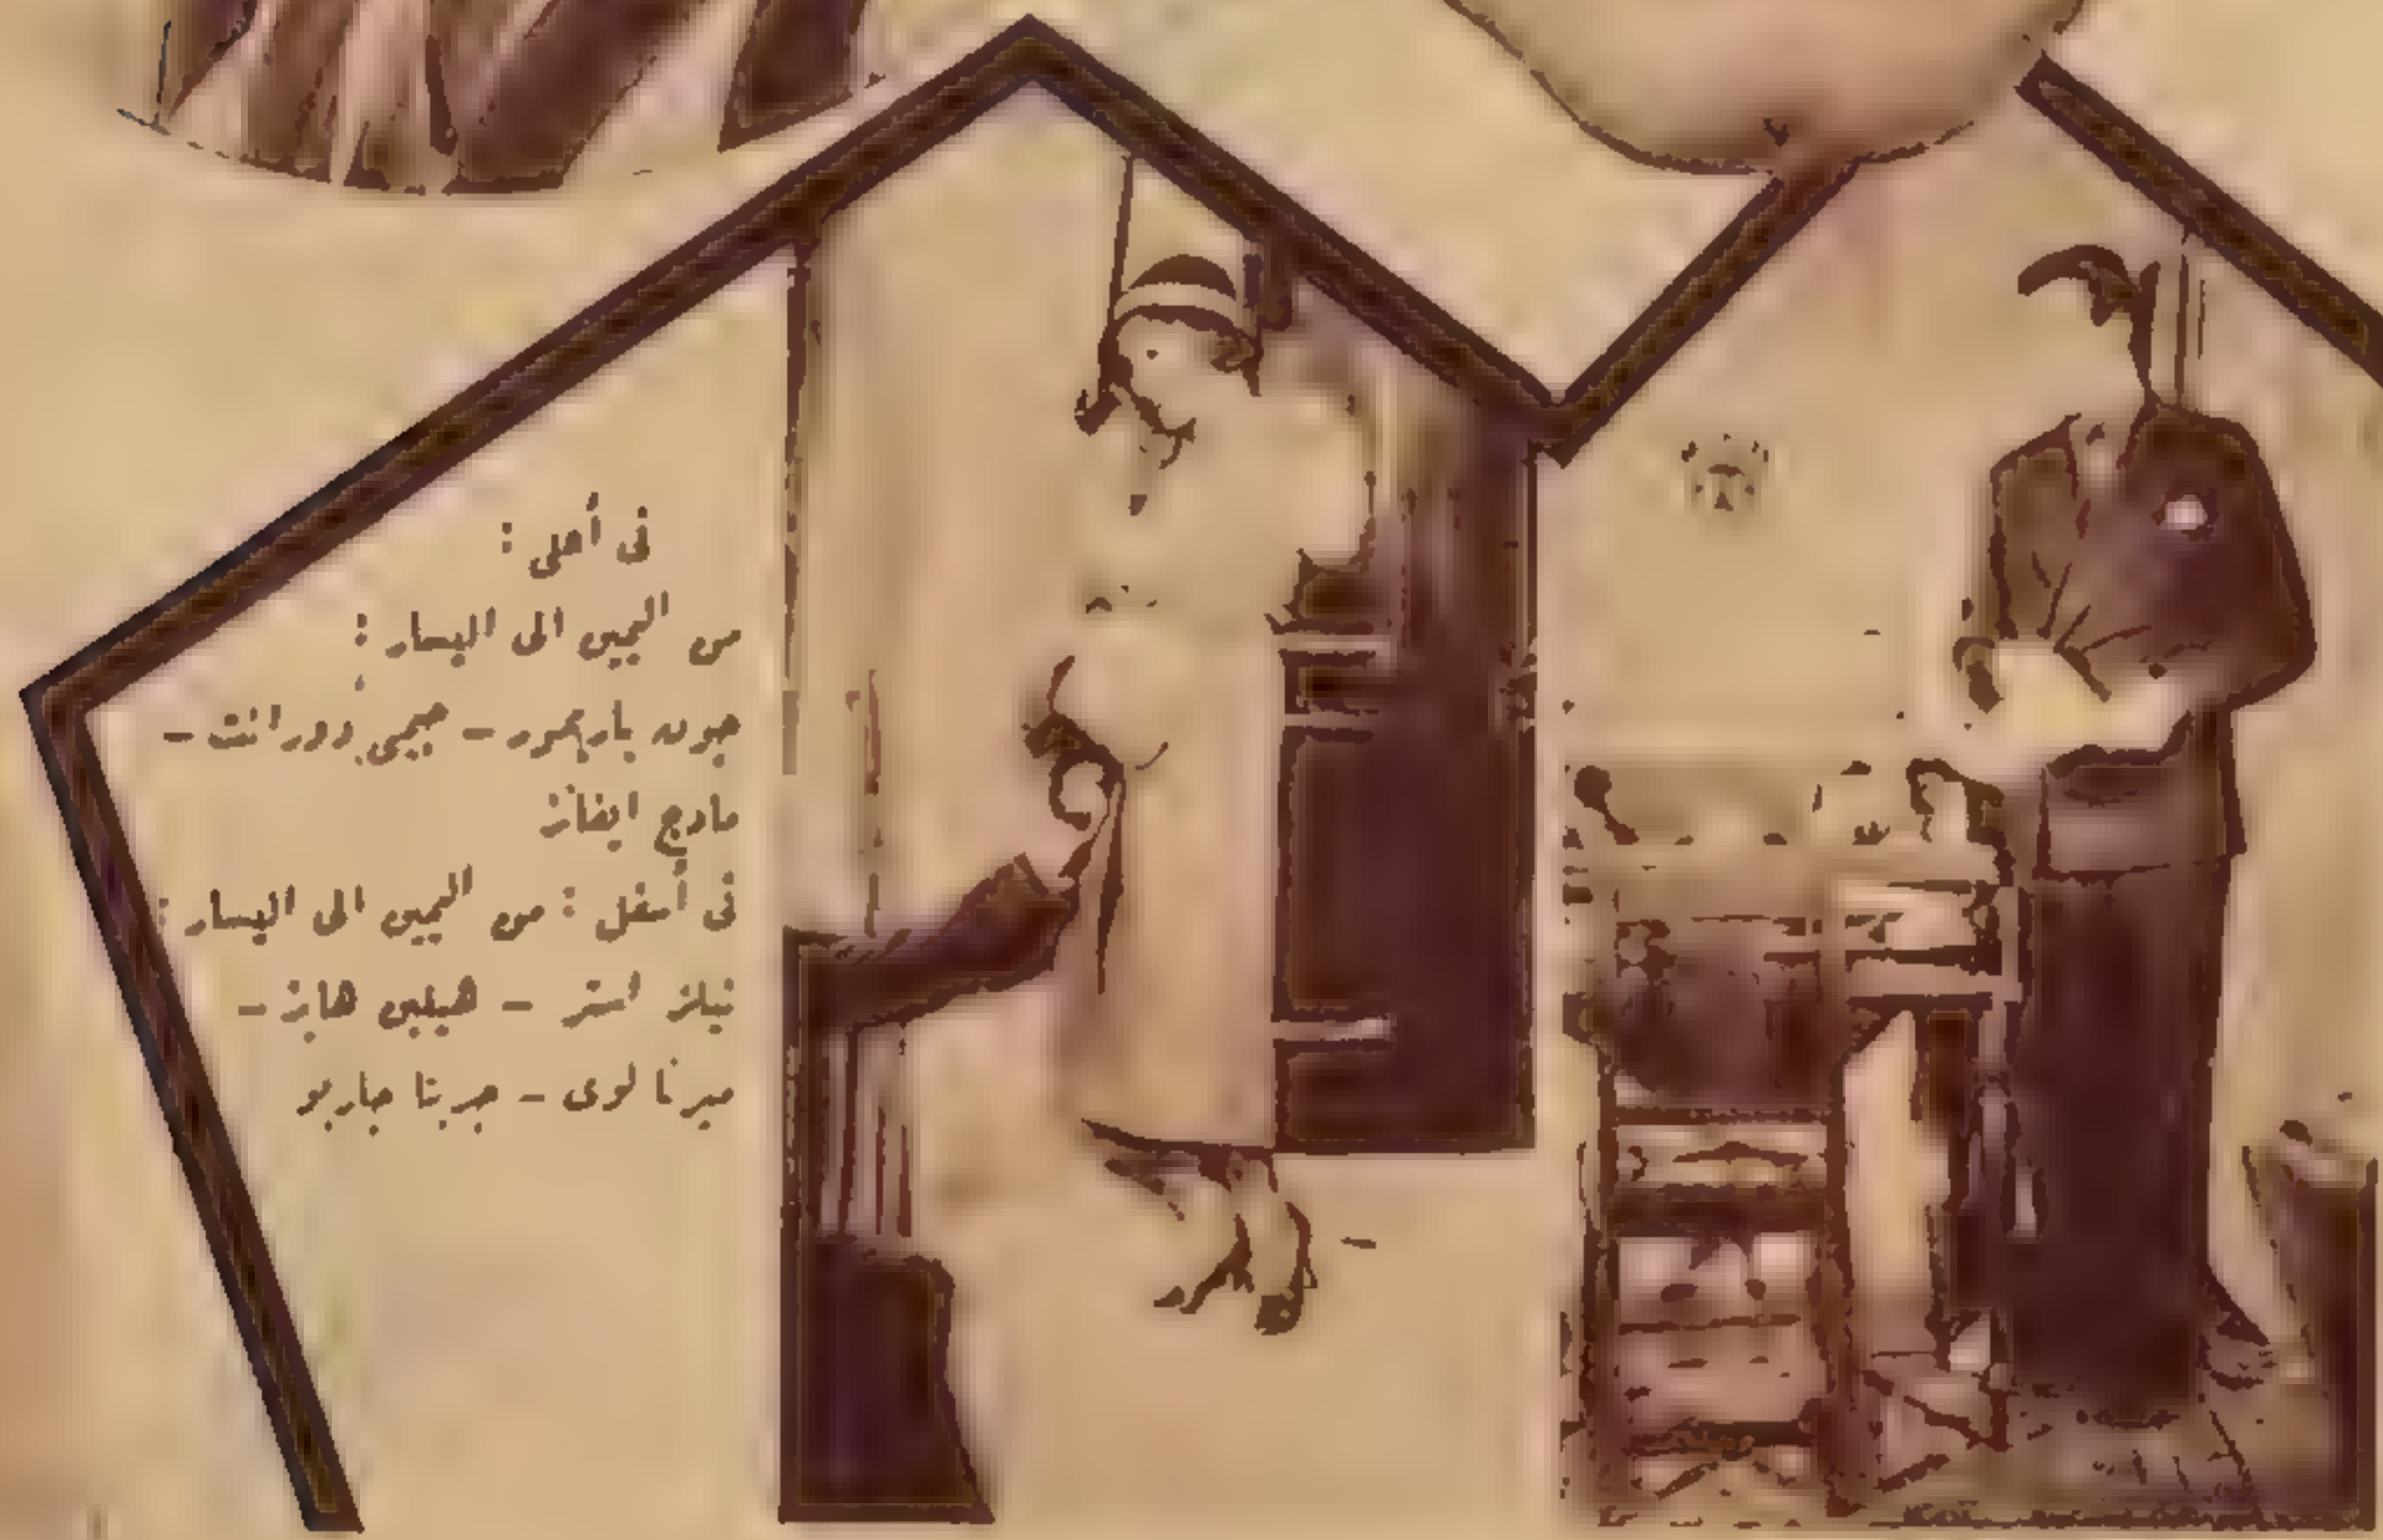 فى أعلى :
من اليمين الى اليسار :
جون باريمور - جيمى دورانت -
مادج ايفانز
فى أسفل : من اليمين الى اليسار :
نيلز استر - هيلين هايز -
ميرنا لوى - جريتا جاربو